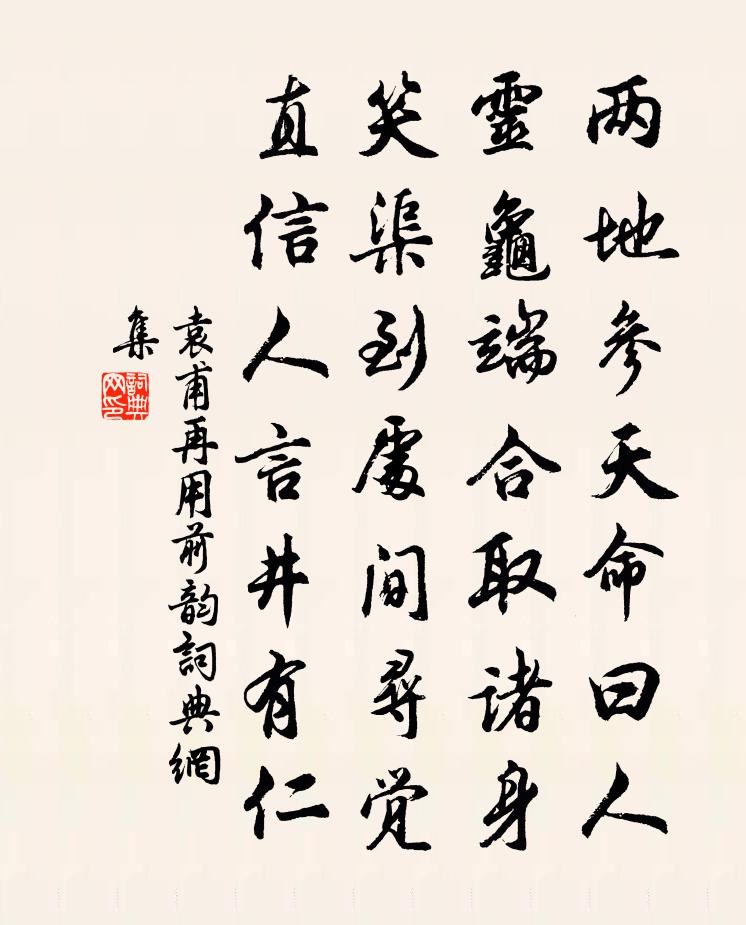 两地參天命曰人
靈龜端合取诸身
笑渠到處间尋觉
直信人言井有仁
袁甫再用前韵詞典網
集
詞典
网印